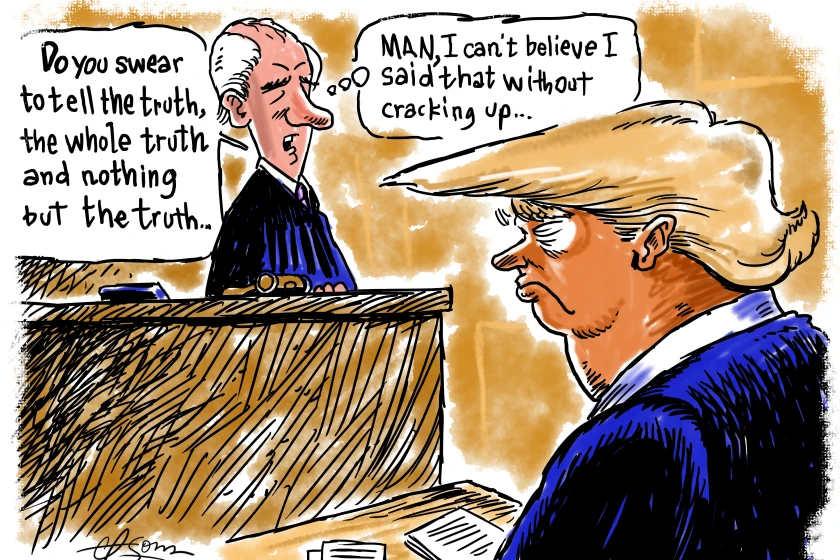 Do you swear
to tell the truth,
the whole truth
and nothing
but the truth...
MAN, I can't believe I
said that without
cracking up...